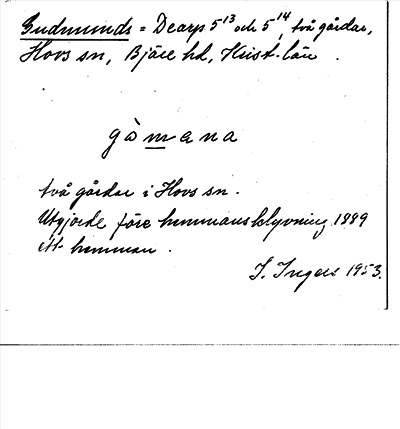 Gudmunds = Dearp 5¹³ och 5¹⁴, två gårdar,
Hovs sn, Bjäre hd, Krist. län.
gàmana
två gårdar i Hovs sn.
Utgjorde före hemmansklyvning 1889
ett hemman.
I. Ingers 1953.